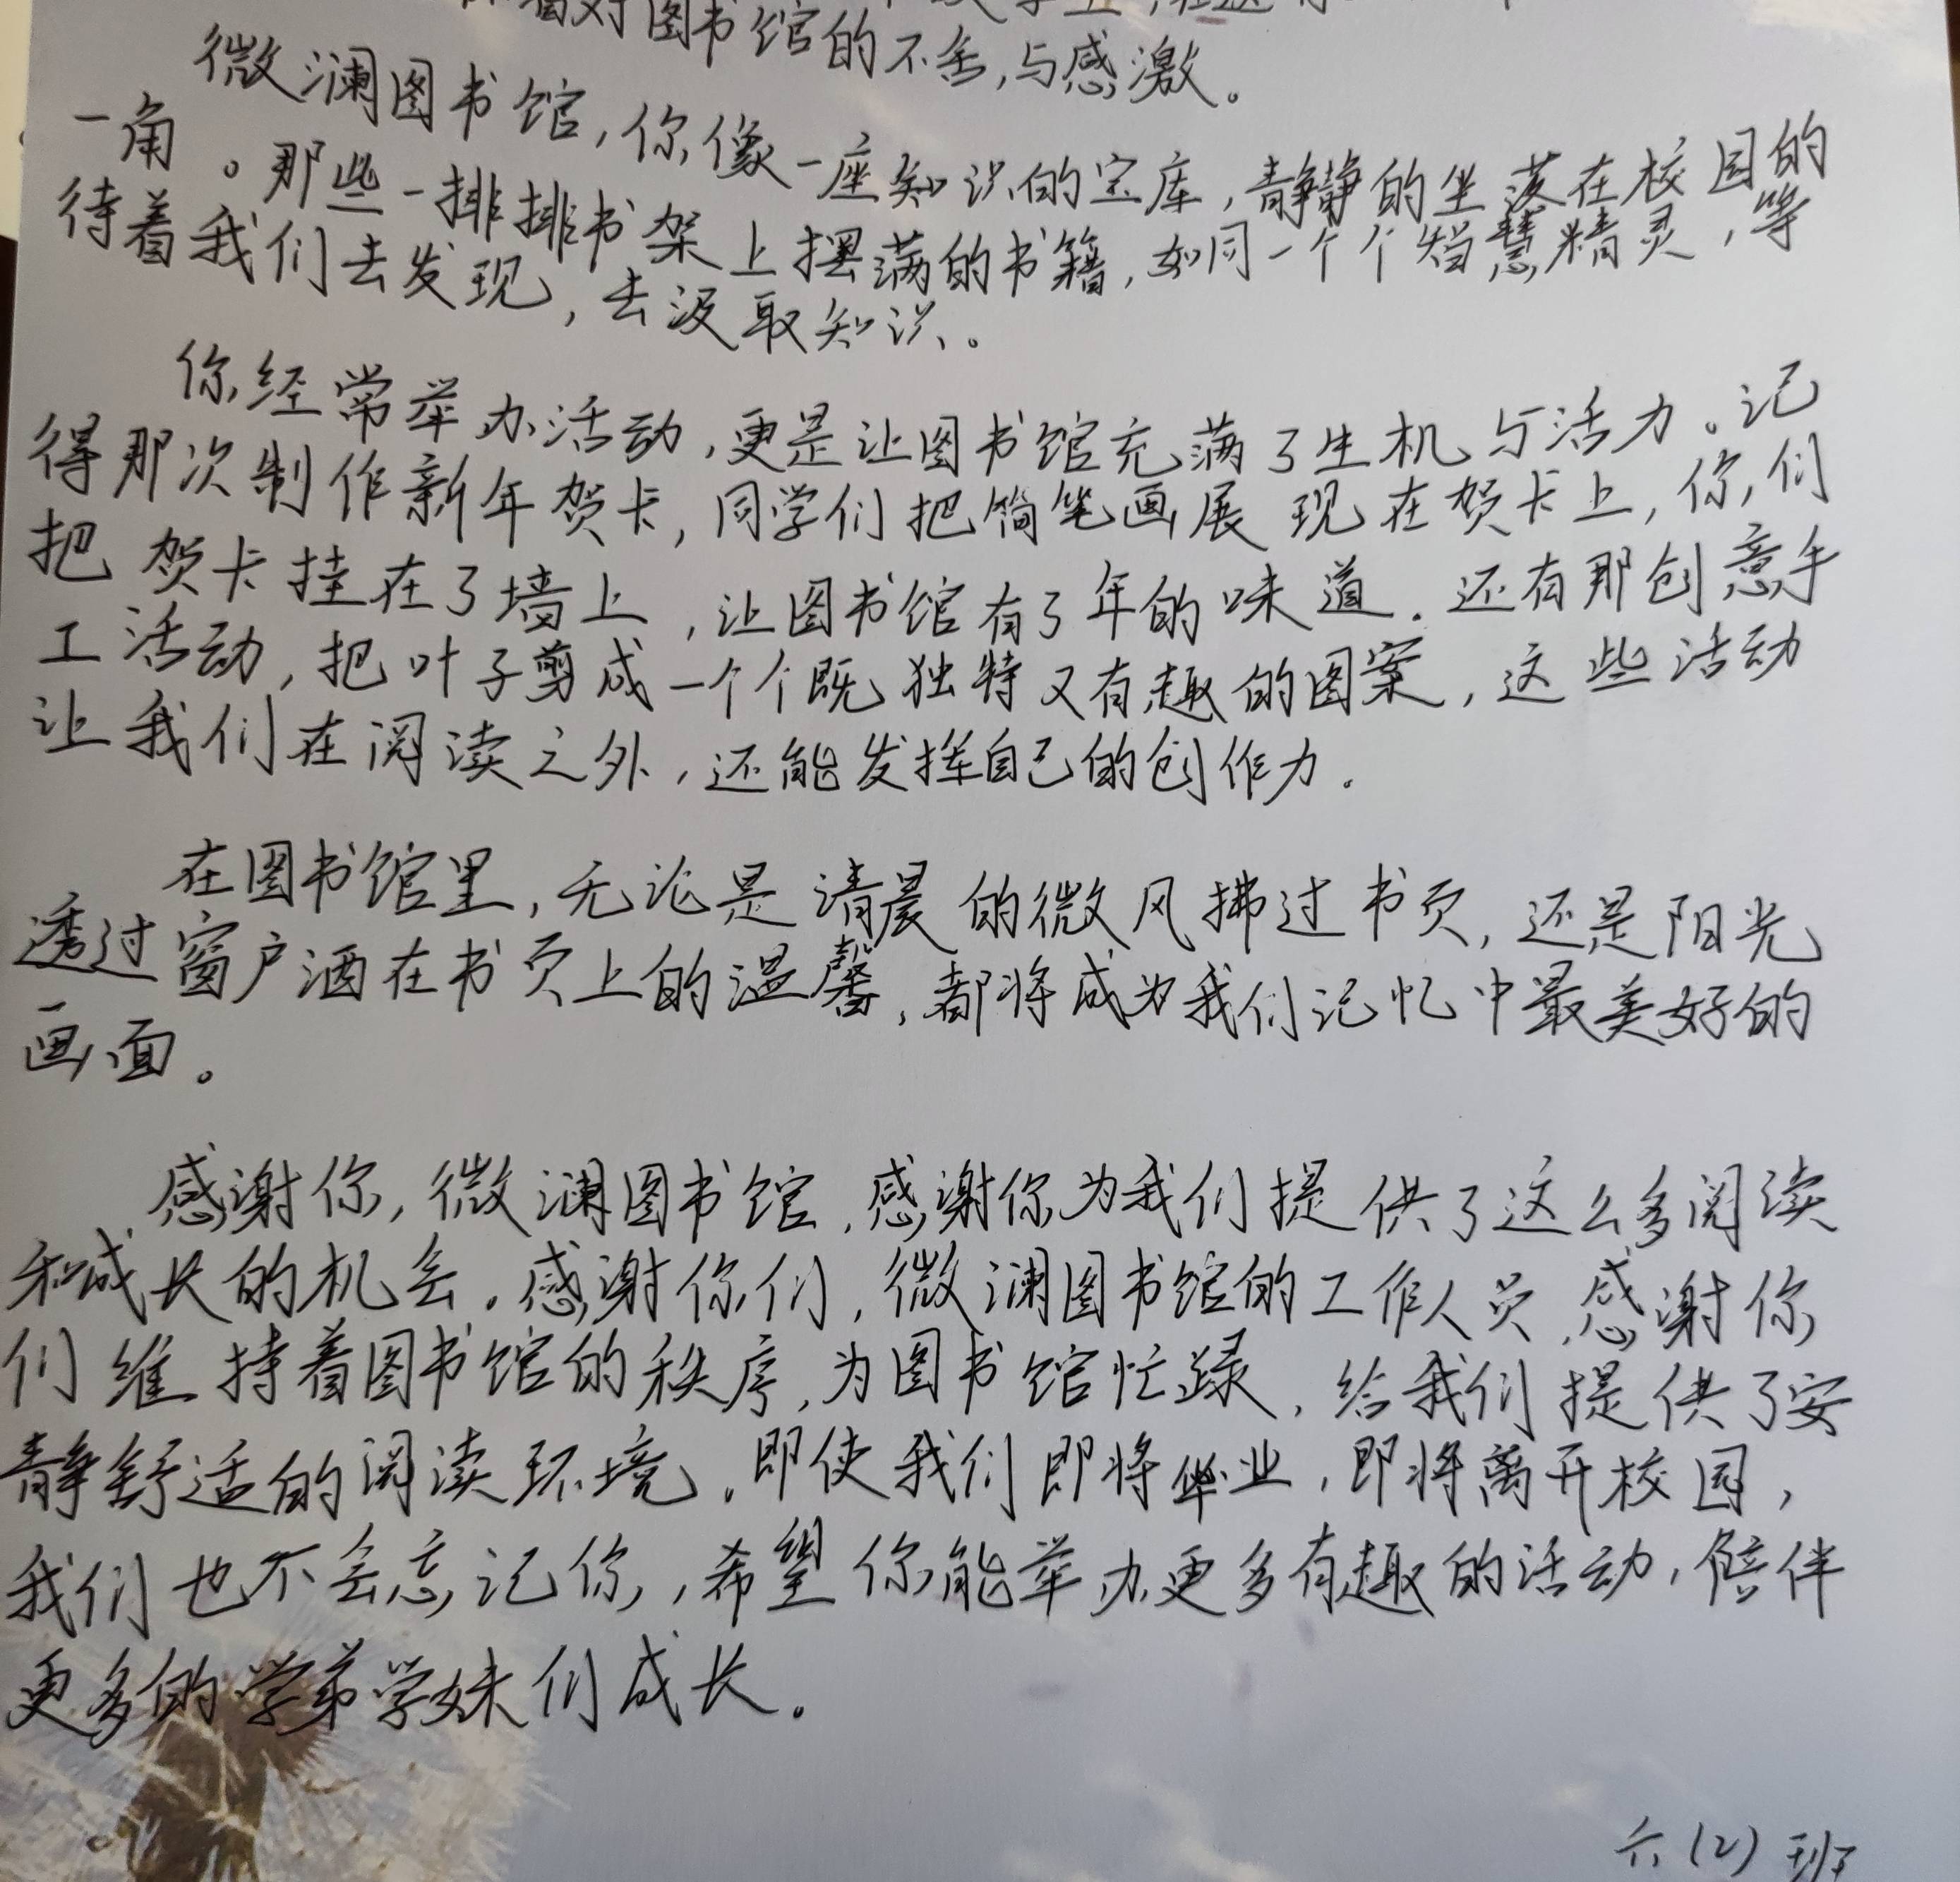 对图书馆的不舍,与感激。
微澜图书馆,你像一座知识的宝库,静静的坐落在校园的
一角。那些一排排书架上摆满的书籍,如同一个个智慧精灵,等
待着我们去发现,去汲取知识。
你经常举办活动,更是让图书馆充满了生机与活力。记
得那次制作新年贺卡,同学们把简笔画展现在贺卡上,你们
把贺卡挂在了墙上,让图书馆有了年的味道.还有那创意手
工活动,把叶子剪成一个个既独特又有趣的图案,这些活动
让我们在阅读之外,还能发挥自己的创作力.
在图书馆里,无论是清晨的微风拂过书页,还是阳光
透过窗户洒在书页上的温馨,都将成为我们记忆中最美好的
画面。
感谢你,微澜图书馆,感谢你为我们提供了这么多阅读
和成长的机会.感谢你们,微澜图书馆的工作人员,感谢你
们维持着图书馆的秩序,为图书馆忙碌,给我们提供了安
静舒适的阅读环境.即使我们即将毕业,即将离开校园,
我们也不会忘记你,希望你能举办更多有趣的活动,陪伴
更多的学弟学妹们成长。
六(2)班